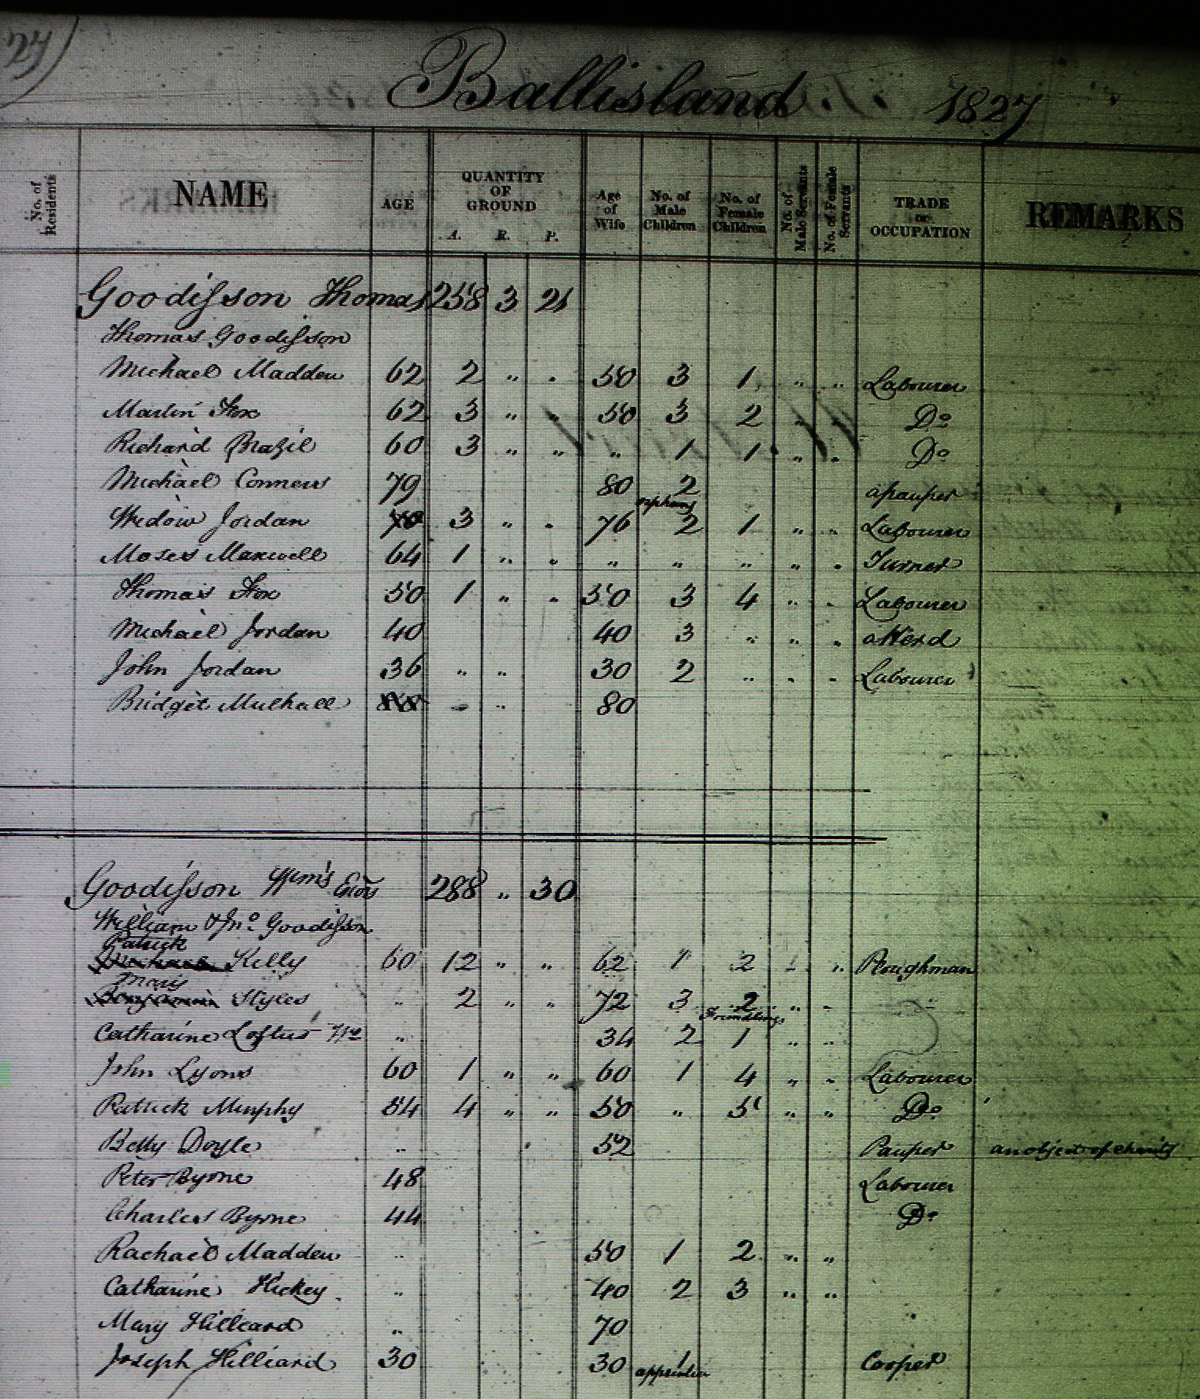 Ballisland 1827
No. of Residents NAME AGE QUANTITY OF GROUND A. R. P. Age of Wife No. of Male Children No. of Female Children No. of Male Servants No. of Female Servants TRADE or OCCUPATION REMARKS
Goodisson Thomas 258 3 21
Thomas Goodisson
Michael Madden 62 2 " " 50 3 1 " " Labourer
Martin Fox 62 3 " " 50 3 2 Do
Richard Brazil 60 3 " " " 1 1 " " Do
Michael Conners 79 80 2 a pauper
orphans
Widow Jordan 3 " " 76 2 1 " " Labourer
Moses Maxwell 64 1 " " " " " " " Turner
Thomas Fox 50 1 " " 50 3 4 " " Labourer
Michael Jordan 40 40 3 " " " a Herd
John Jordan 36 " " 30 2 " " " Labourer
Bridget Mulhall " " 80
Goodisson Wm's Exors 288 " 30
William & Jno Goodisson
Patrick
Michael Kelly 60 12 " " 62 1 2 " " Ploughman
Mary
Benjamin Styles " 2 " " 72 3 2 " " "
Foundlings
Catharine Loftus " 34 2 1 " "
John Lyons 60 1 " " 60 1 4 " " Labourer
Patrick Murphy 54 4 " " 50 " 5 " " Do
Betty Doyle " 52 Pauper an object of charity
Peter Byrne 48 Labourer
Charles Byrne 44 Do
Rachael Madden " 50 1 2 " "
Catharine Hickey " 40 2 3 " "
Mary Hilleard " 70
Joseph Hilliard 30 30 1 Cooper
apprentice